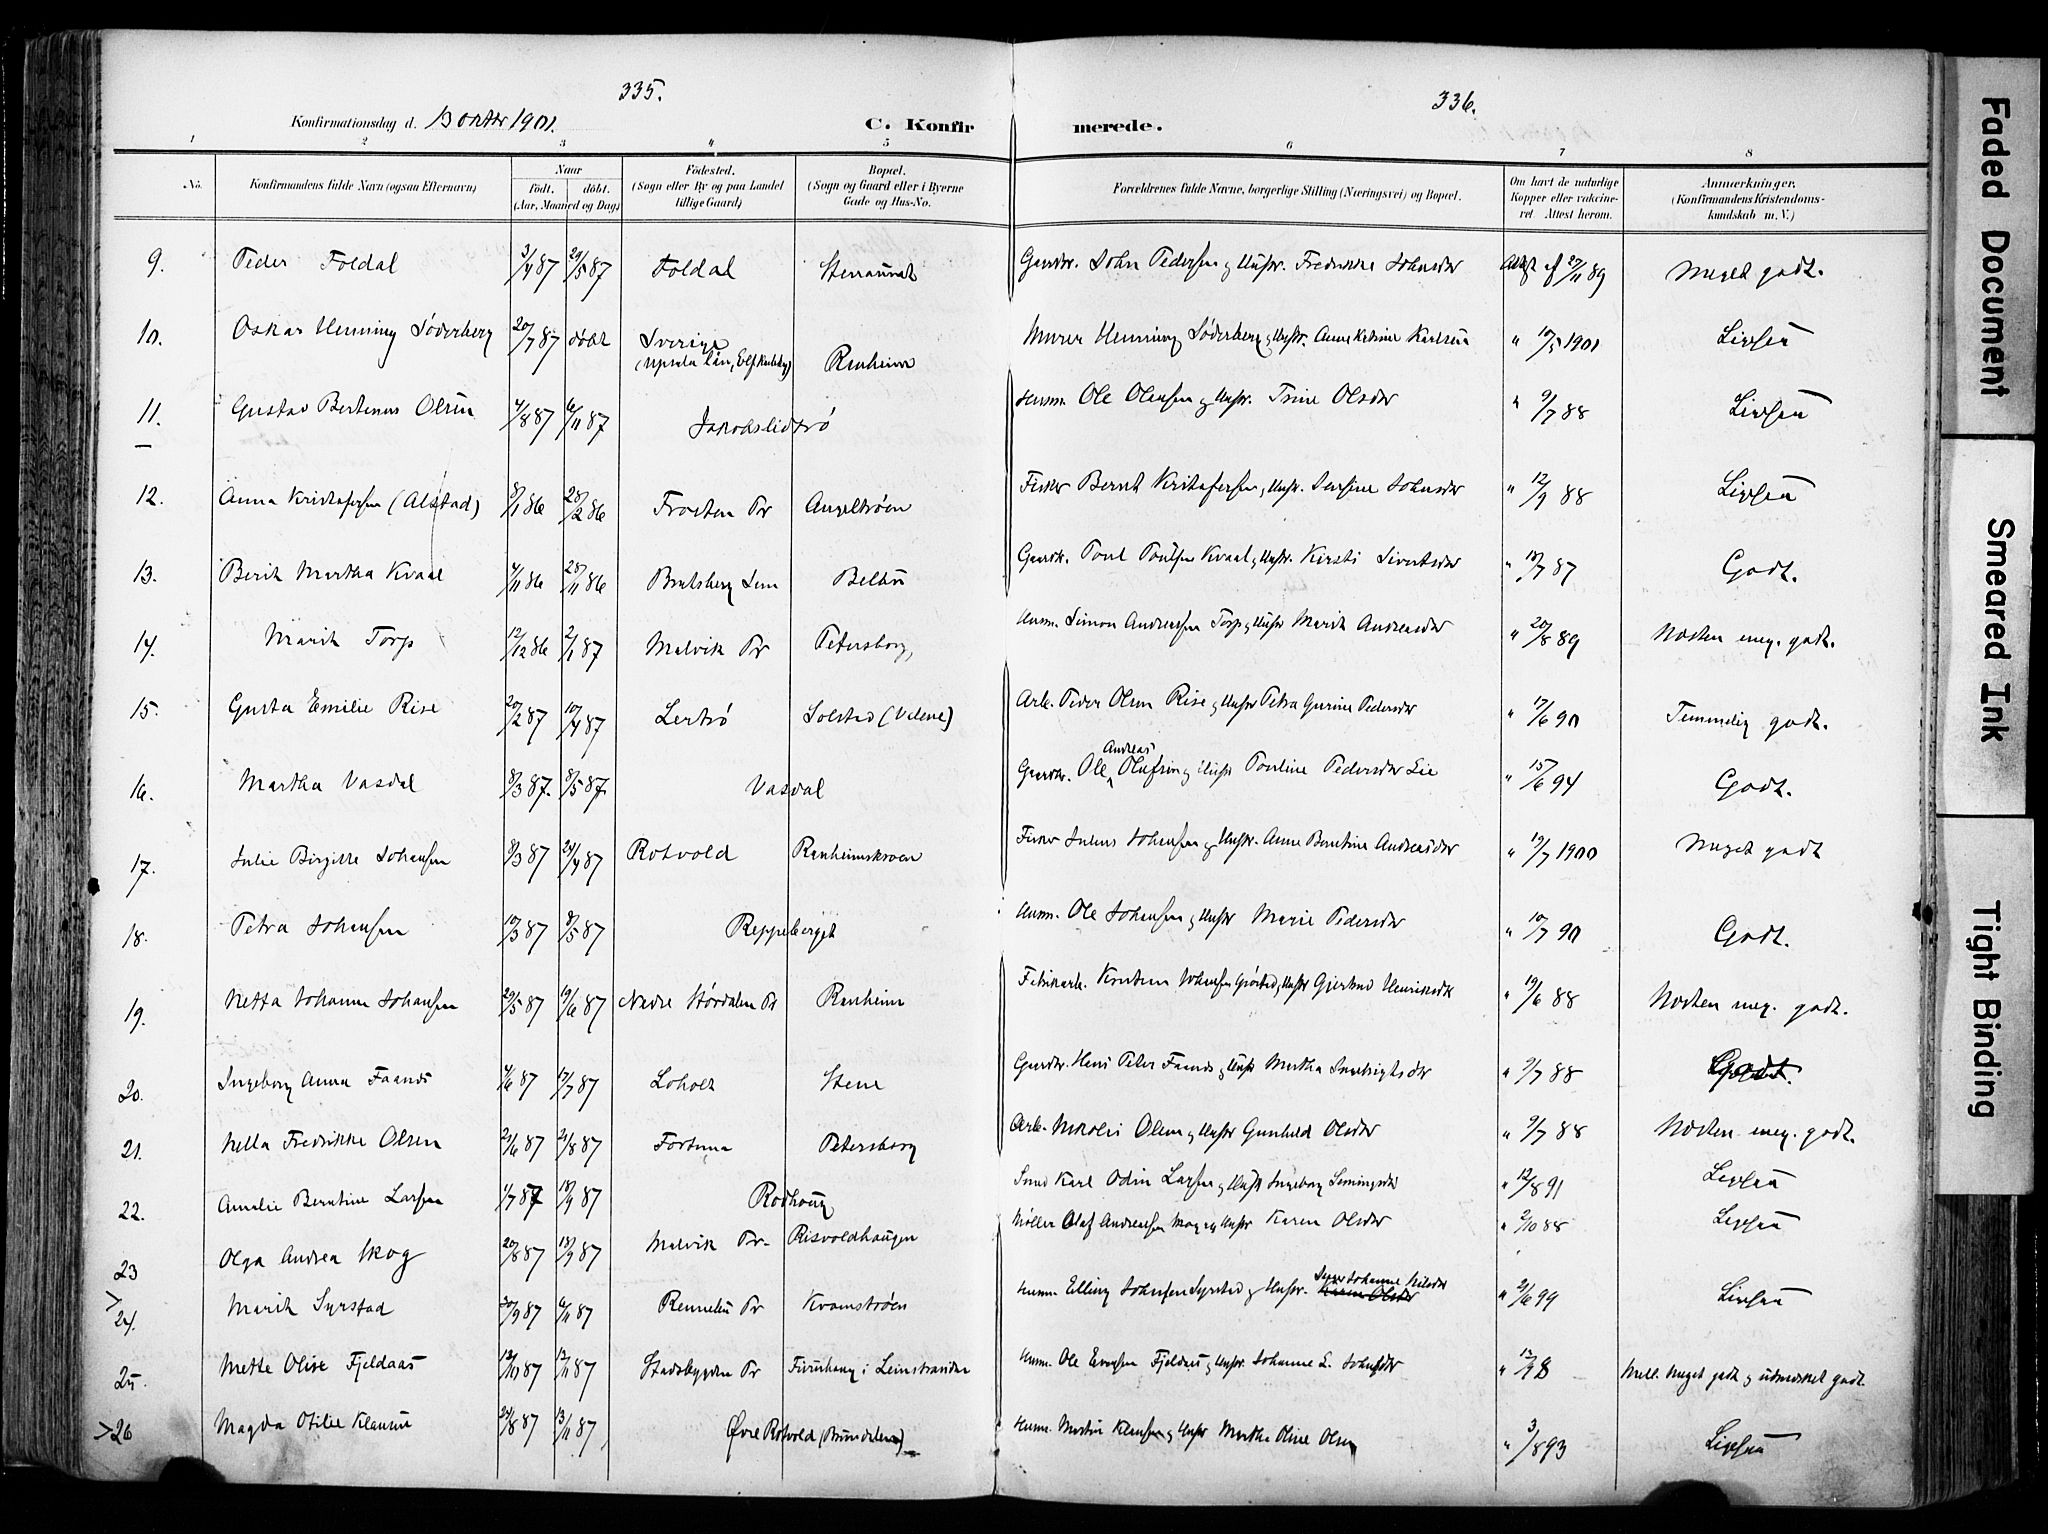 335.
336.
Konfirmationsdag d. 13 okter 1901.
C. Konfirmerede.
1 2 3 4 5 6 7 8
No.
Konfirmandens fulde Navn (ogsaa Efternavn)
Naar
født. døbt.
(Aar, Maaned og Dag)
Fødested.
(Sogn eller By og paa Landet
tillige Gaard)
Bopæl.
(Sogn og Gaard eller i Byerne
Gade og Hus-No.
Forældrenes fulde Navne, borgerlige Stilling (Næringsvei) og Bopæl.
Om havt de naturlige
Kopper eller vakcine-
ret Attest herom.
Anmærkninger.
(Konfirmandens Kristendoms-
kundskab m. V.)
9. Peder Foldal 3/4 87 29/5 87 Foldal Gaardbr. John Pedersen og Hustr. Fredrikke Johnsdr Attest af 27/11 89 Meget godt.
10. Oskar Henning Søderberg 20/7 87 døbt Sverige Murer Henning Søderberg og Hustr. Anne Katrine Karlsen " 10/5 1901
(Upsala län, Elfkarleby) Ranheim
11. Gustav Bertinus Olsen 4/8 87 6/11 87 Jakobslidtrø Husm. Ole Olausen og Hustr. Trine Olsdr " 9/7 88
12. Anna Kristofersen (Alstad) 8/1 86 28/2 86 Frosten Pr Angeltrøen Fisker Bernt Kristofersen og Hustr. Jensine Johnsdr " 12/9 88
13. Berit Martha Kvaal 4/11 86 28/11 86 Bratsberg Sem Gaardbr. Poul Poulsen Kvaal og Hustr. Kirsti Sivertsdr " 18/7 87 Godt.
14. Marit Torp 12/12 86 2/1 87 Malvik Pr Petersborg, Husm. Simon Andreassen Torp og Hustr Marit Andreasdr " 20/8 89 Næsten meg. godt.
15. Gusta Emilie Rise 20/2 87 10/4 87 Lertrø Solstad (Velene) Arb. Peder Olsen Rise og Hustr Petra Gurine Pedersdr " 17/6 90 Temmelig godt.
16. Martha Vasdal 8/3 87. 8/5 87. Vasdal Gaardbr. Ole Andreas Olufsen og Hustr Pauline Pedersdr Lie " 15/6 94 Godt.
17. Julie Birgitte Johansen 8/3 87 24/4 87 Rotvold Ranheimskroen Fisker Julius Johansen og Hustr. Anne Berntine Andreasdr " 19/7 1900 Meget godt
18. Petra Johansen 17/3 87 8/5 87 Reppeberget Husm. Ole Johansen og Hustr Marie Pedersdr " 10/7 90 Godt.
19. Netta Johanne Johansen 29/5 87 19/6 87 Nedre Størdalen Pr Ranheim " 19/6 88 Næsten meg. godt.
20. Ingeborg Anna Faanes 4/6 87 17/7 87 Loholt Stene " 9/7 88 Godt.
21. Nella Fredrikke Olsen 21/6 87 21/8 87 Fortuna Petersborg Arb. Nikolai Olsen og Hustr Gunhild Olsdr " 9/7 88 Næsten meg. godt.
22. Amalie Berntine Larsen 1/7 87 18/9 87 Rodhaug Smed Karl Odin Larsen og Hustr Ingeborg Semingsdr " 12/8 91
23 Olga Andrea Skog 20/8 87 18/9 87 Malvik Pr. Risvoldhaugen Møller Olaf Andreassen Skog og Hustr Karen Olsdr " 2/10 88
> 24. Marit Syrstad 30/9 87 6/11 87 Rennebu Pr Kvamstrøen Husm. Elling Johnsen Syrstad og Hustr. Karen Olsdr " 21/6 99
25. Mette Olise Fjeldaas 12/10 87 13/11 87 Stadsbygden Pr Furuhaug i Leinstranden Husm. Ole Evensen Fjeldaas og Hustr. Johanne L. Johnsdr Mell. Meget godt og udmærket godt.
>26 Magda Otilie Klausen 24/8 87 13/11 87 Øvre Rotvold (Brundalen) Husm. Martin Klausen og Hustr Martha Oline Olsen " 3/8 93
Faded Document
Smeared Ink
Tight Binding